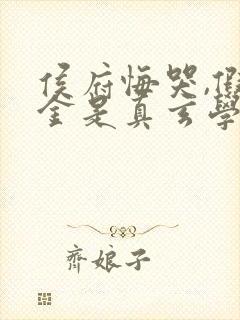 侯府悔哭,假
金是真玄學
齊娘子